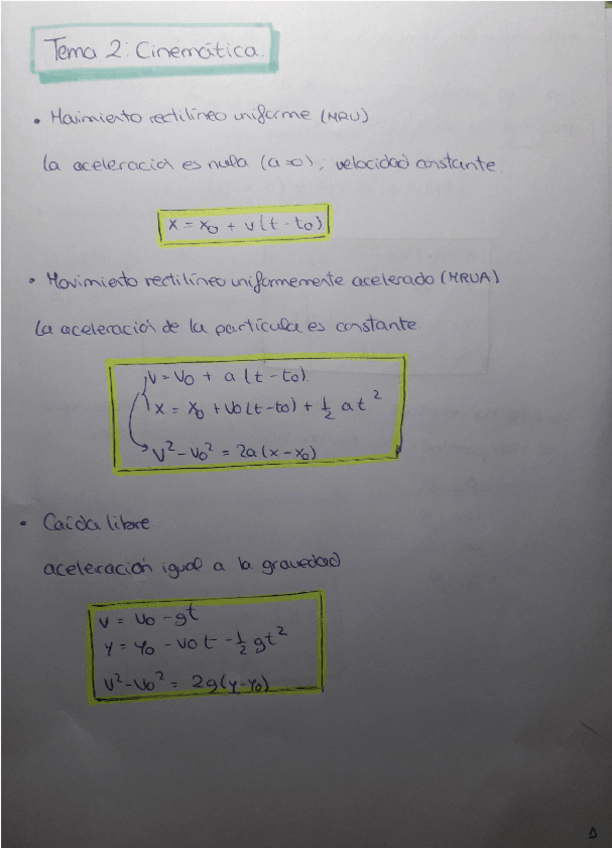 Tema 2: Cinemática.
• Movimiento rectilíneo uniforme (MRU)
La aceleración es nula (a=0), velocidad constante.
x = x₀ + v(t-t₀)
• Movimiento rectilíneo uniformemente acelerado (MRUA)
La aceleración de la partícula es constante.
v = v₀ + a(t-t₀)
x = x₀ + v₀(t-t₀) + ½ at²
v² - v₀² = 2a(x-x₀)
• Caída libre
aceleración igual a la gravedad
v = v₀ - gt
y = y₀ - v₀t - ½ gt²
v² - v₀² = 2g(y-y₀)